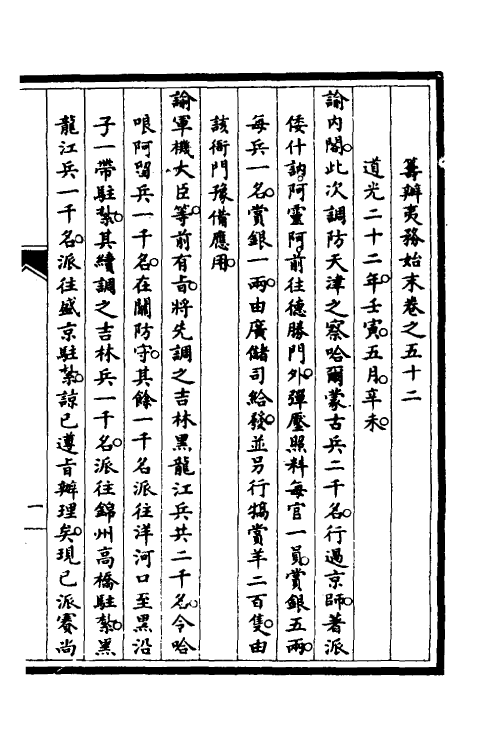 籌辦夷務始末卷之五十二
道光二十二年。壬寅。五月。辛未。
諭内閣。此次調防天津之察哈爾蒙古兵二千名。行過京師。著派
倭什訥。阿靈阿。前往德勝門外。彈壓照料。每官一員。賞銀五兩。
每兵一名。賞銀一兩。由廣儲司給發。並另行犒賞羊二百隻。由
該衙門豫備應用。
諭軍機大臣等。前有旨。將先調之吉林黑龍江兵共二千名。令哈
哴阿留兵一千名。在關防守。其餘一千名派往洋河口至黑沿
子一帶駐紮。其續調之吉林兵一千名。派往錦州高橋駐紮。黑
龍江兵一千名。派往盛京駐紮。諒已遵旨辦理矣。現已派賽尚
一